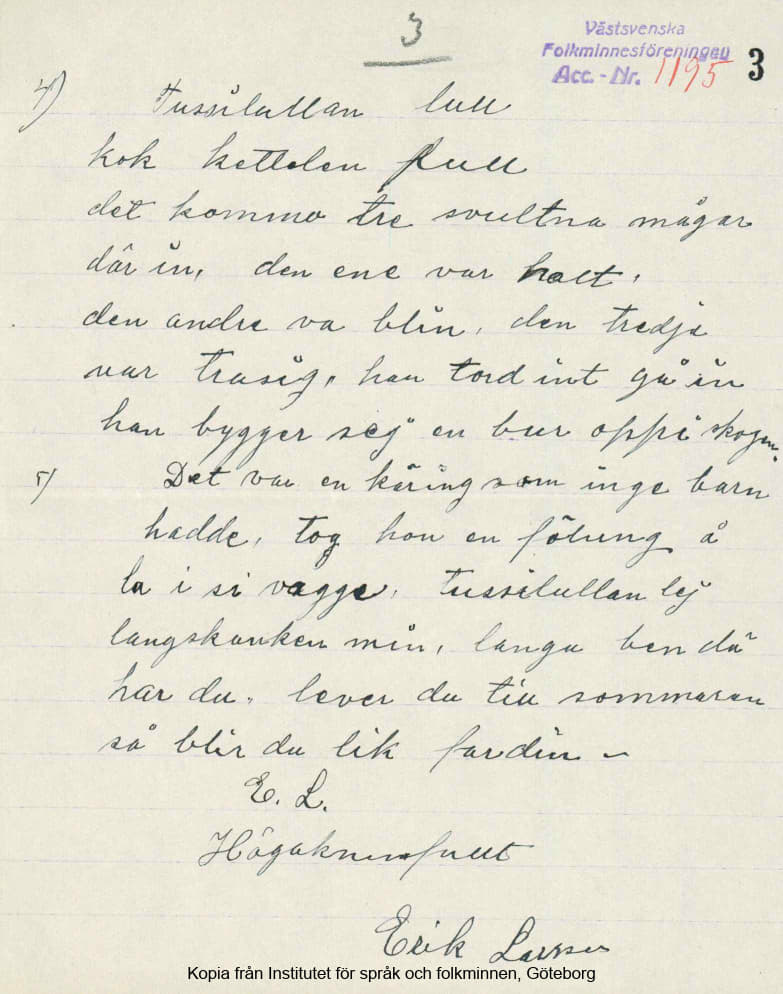 3
Västsvenska
Folkminnesföreningen
Acc. - Nr. 1195
3
4) Tussilullan lull
kok kettelen full
det kommo tre svultna mågar
där in, den ene var halt,
den andre va blin, den tredje
var trasig, han tord int gå in
han bygger sej en bur oppi skogen.
5) Det var en käring som inge barn
hadde, tog hon en fölung å
la i si vagge, tussilullan lej
langskanken min, langa ben då
har du, lever du till sommaran
så blir du lik fardin –
E. L.
Erik Larsson
Kopia från Institutet för språk och folkminnen, Göteborg